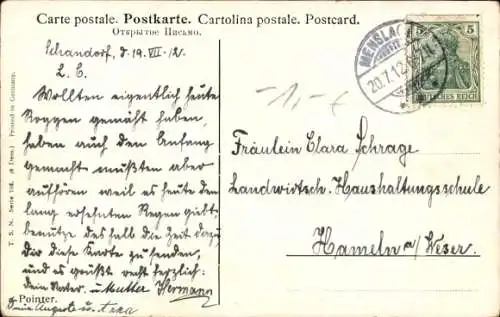 Carte postale. Postkarte. Cartolina postale. Postcard.
Открытое Письмо.
Schandorf, d. 19. VII. 12.
L. C.
Wollten eigentlich heute
Roggen gemäht haben,
haben auch den Anfang
gemacht mußten aber
aufhören weil es heute den
lang ersehnten Regen giebt
benutze deshalb die Zeit dazu
Dir diese Karte zu senden,
und es grüßt recht herzlich
dein Vater u. Mutter Hermann
Auguste u.
Pointer.
T. S. N. Serie Printed in Germany.
MENSLAGE
20.7.12.
5
DEUTSCHES REICH
1,- €
Fräulein Clara Schrage
Landwirtsch. Haushaltungsschule
Hameln a/ Weser.